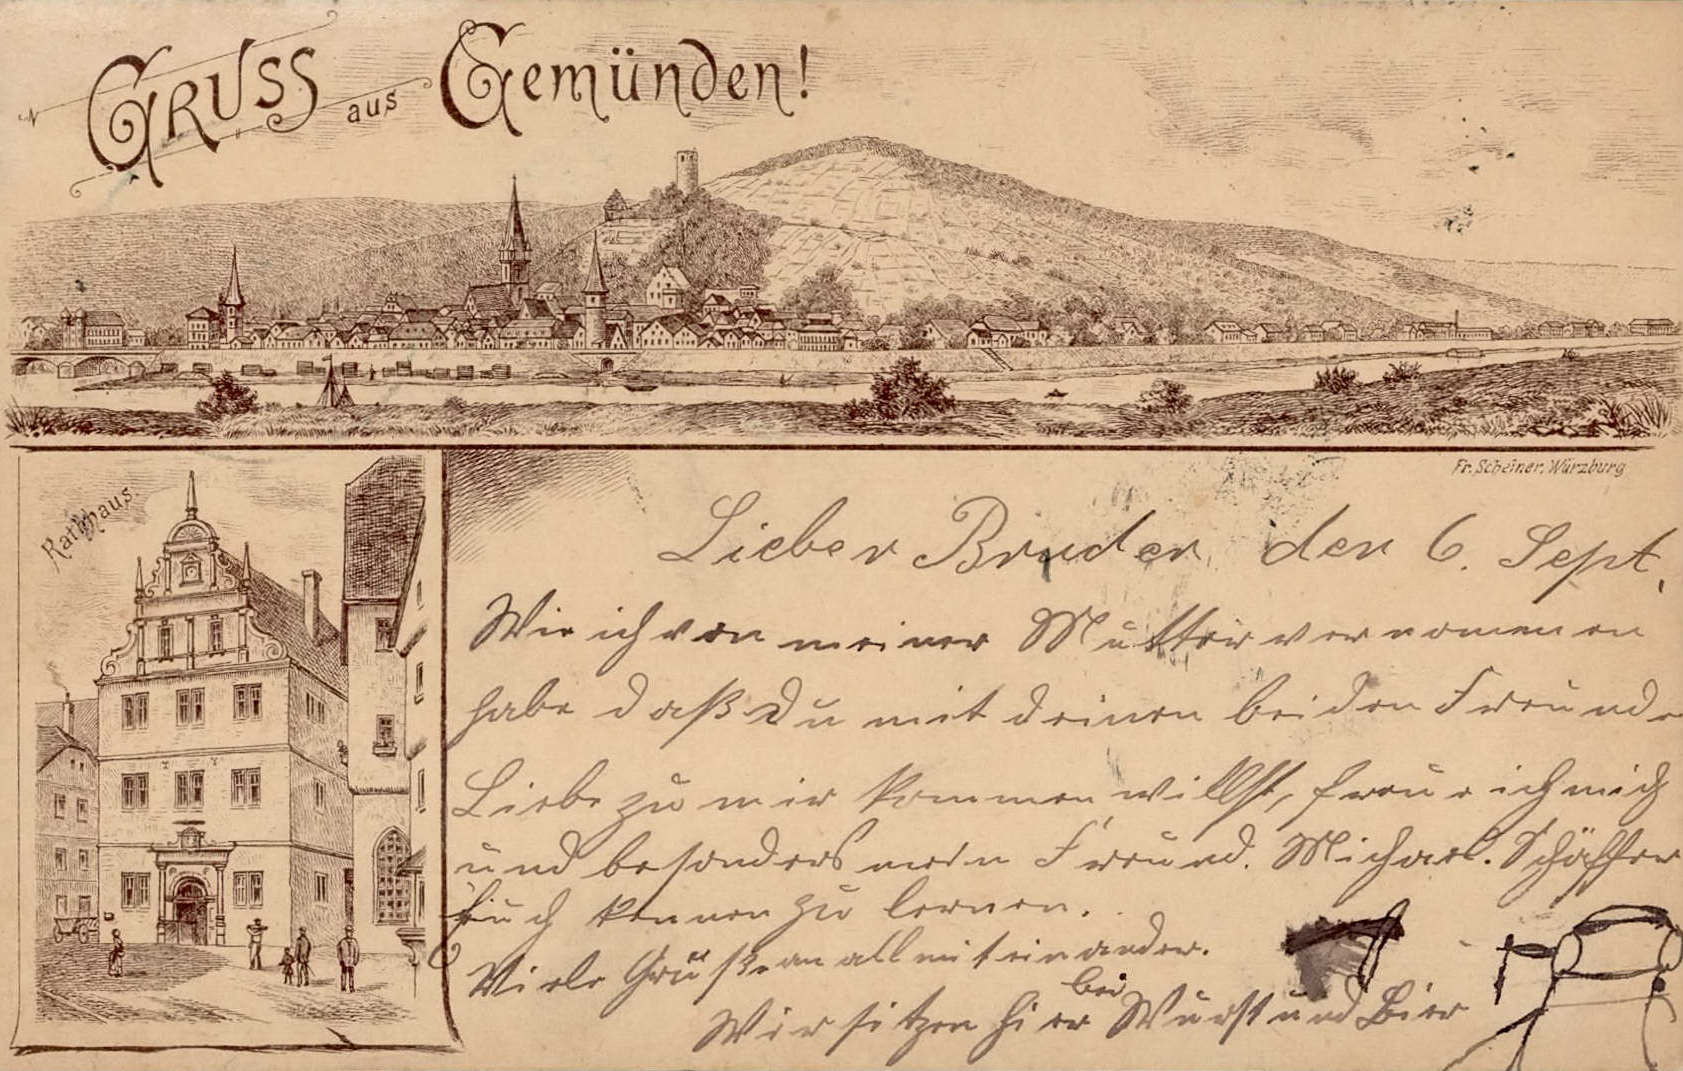 Gruss aus Gemünden!
Fr. Scheiner, Würzburg
Rathhaus.
Lieber Bruder den 6. Sept.
Wie ich von meiner Mutter vernomenen
habe daß Du mit deinen beiden Freunde
Liebe zu mir kommen willst, freue ich mich
und besonders mein Freund. Michael. Schäffer
Euch kennen zu lernen.
Viele Grüße an all miteinander.
Wir sitzen hier bei Wurst und Bier